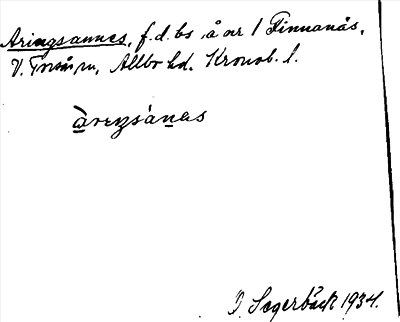 Aringsannes, f.d. bs å nr 1 Finnanäs,
V. Torsås sn, Allbo hd. Kronob. l.
D. Segerbäck 1934.